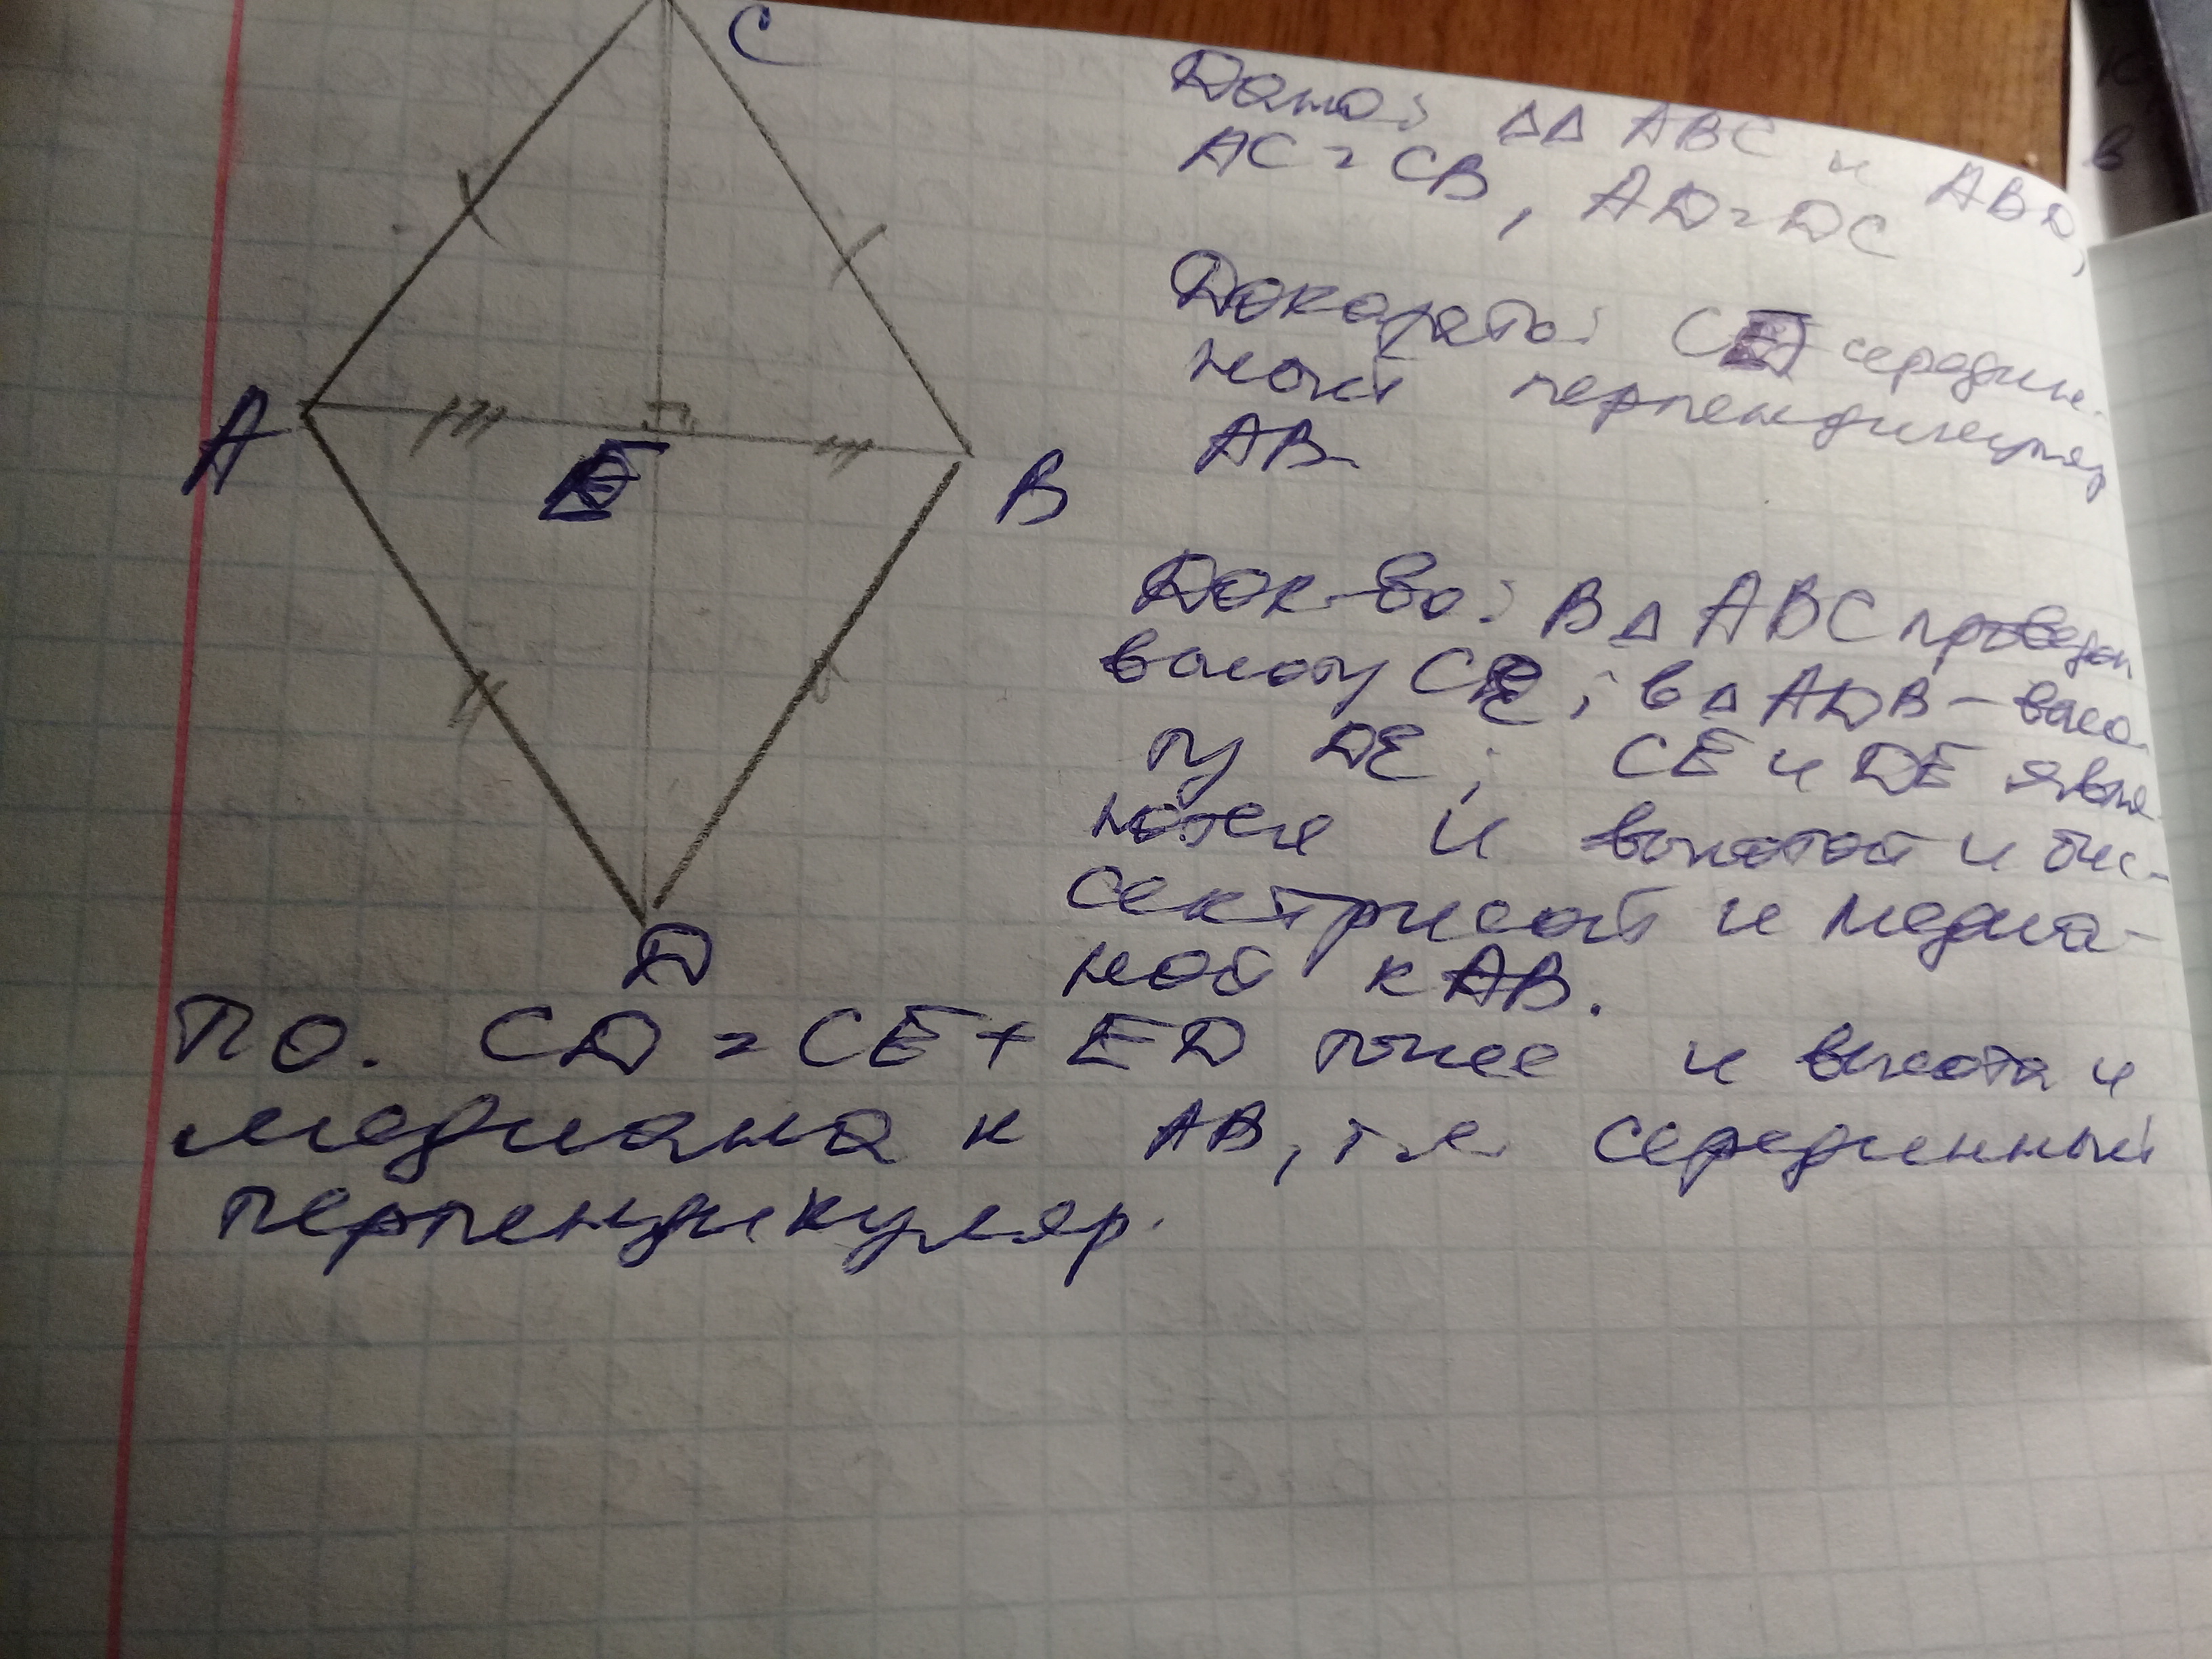 C
Дано: ΔΔ ABC и ABD,
AC = CB, AD = DC
Доказать: CD середин-
ный перпендикуляр
AB.
A
E
B
Док-во: В Δ ABC проведем
высоту CE; в Δ ADB - высо-
ту DE; CE и DE явля-
ются и высотой и бис-
сектрисой и медиа-
ной к AB.
D
ПО. CD = CE + ED и высота и
медиана к AB, т.е. серединный
перпендикуляр.